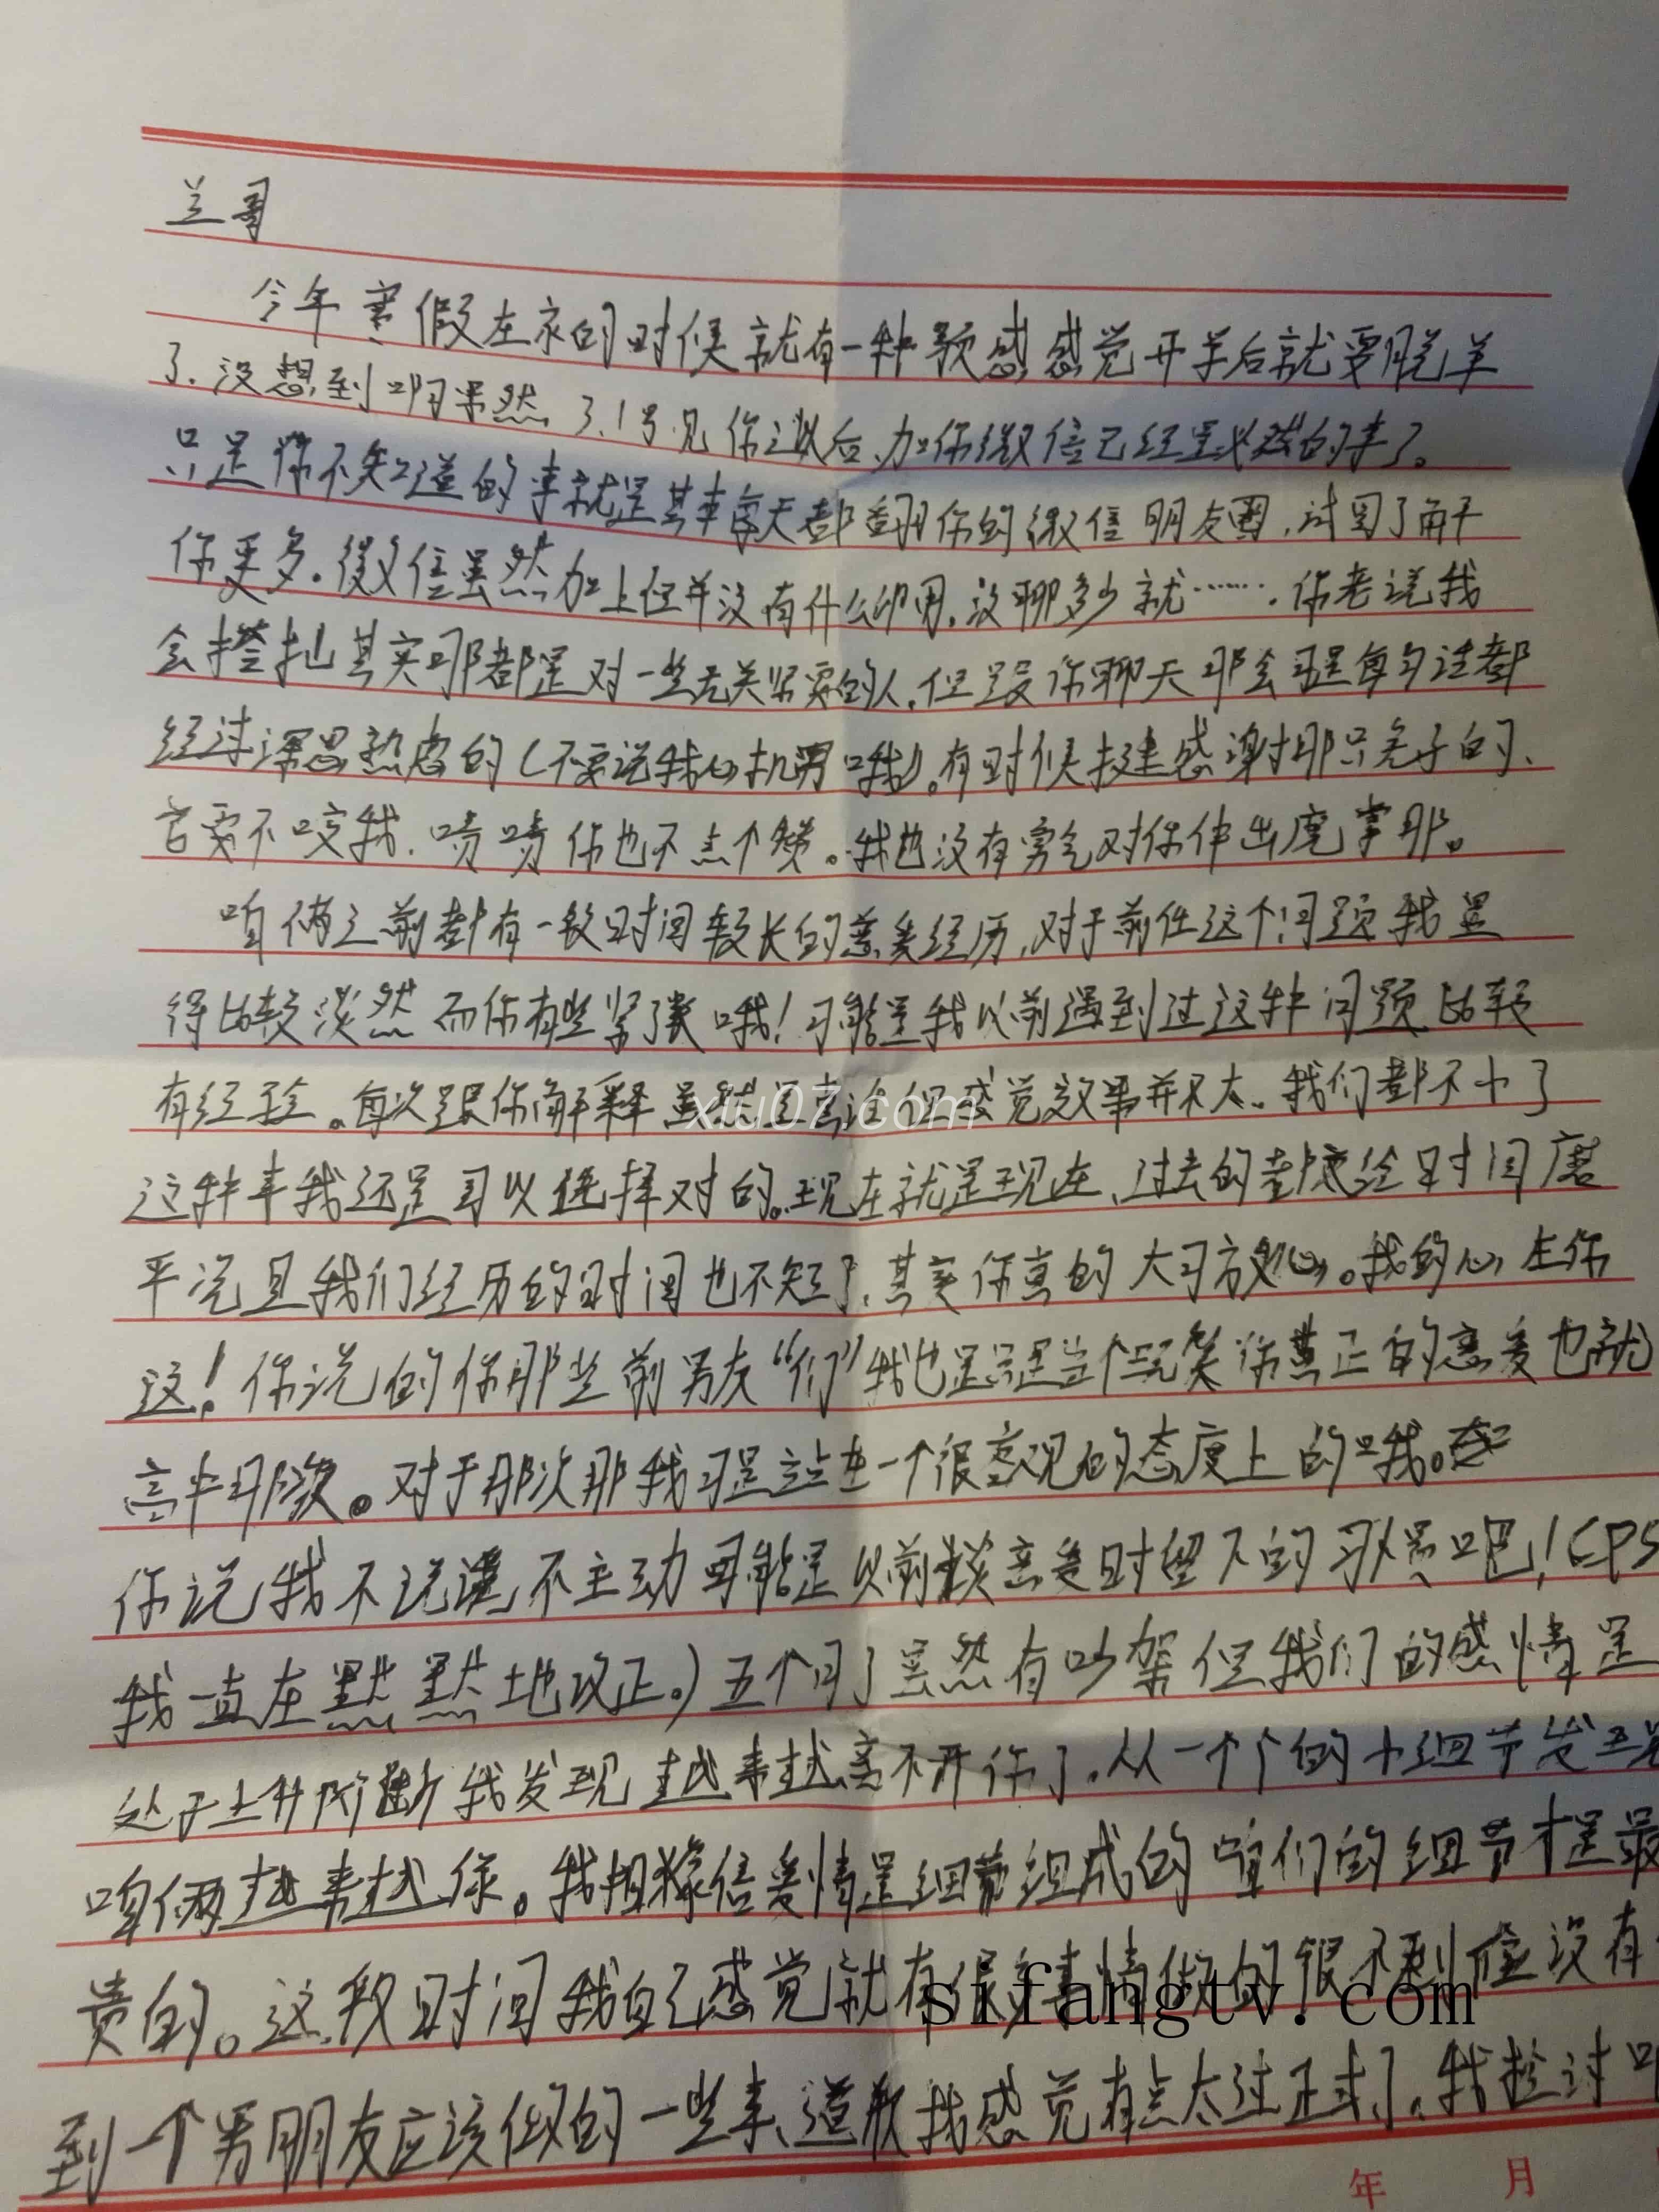 兰哥
今年寒假在家的时候就有一种预感感觉开学后就要脱单
了.没想到啊果然了.1号见你之以后加你微信已经是必然的事了。
只是你不知道的事就是其事每天都翻你的微信朋友圈.试图了解
你更多.微信虽然加上但并没有什么卵用.没聊多少就…….你老说我
会搭讪其实那都是对一些无关紧要的人.但是跟你聊天那会可是每句话都
经过深思熟虑的(不要说我心机男哦)。有时候挺感谢那只兔子的、
它要不咬我.啧啧你也不点个赞。我也没有勇气对你伸出魔掌耶。
咱俩之前都有一段时间较长的恋爱经历,对于前任这个问题我显
得比较淡然而你有些紧张哦!可能是我以前遇到过这种问题比较
有经验。每次跟你解释虽然是但感觉效果并不大。我们都不小了
xiu07.com
这种事我还是可以选择对的。现在就是现在、过去的都给时间磨
平况且我们经历的时间也不短了.其实你真的大可放心。我的心在你
这!你说的你那些前男友“们”我也是只是当个玩笑你真正的恋爱也就
高中那段。对于那次那我可是站在一个很客观的态度上的哦。
你说我不说谎不主动可能是以前谈恋爱时留下的习惯吧!(PS
我一直在默默地改正。)五个月了虽然有吵架但我们的感情是
处于上升阶段我发现越来越离不开你了.从一个个的小细节发现
咱俩越来越像。我相信爱情是细节组成的咱们的细节才是最
贵的。这段时间我自己感觉就有很多事情做的很不到位没有
sifangtv.com
到一个男朋友应该做的一些事、道歉我感觉有点太过正式了.我检讨
年 月